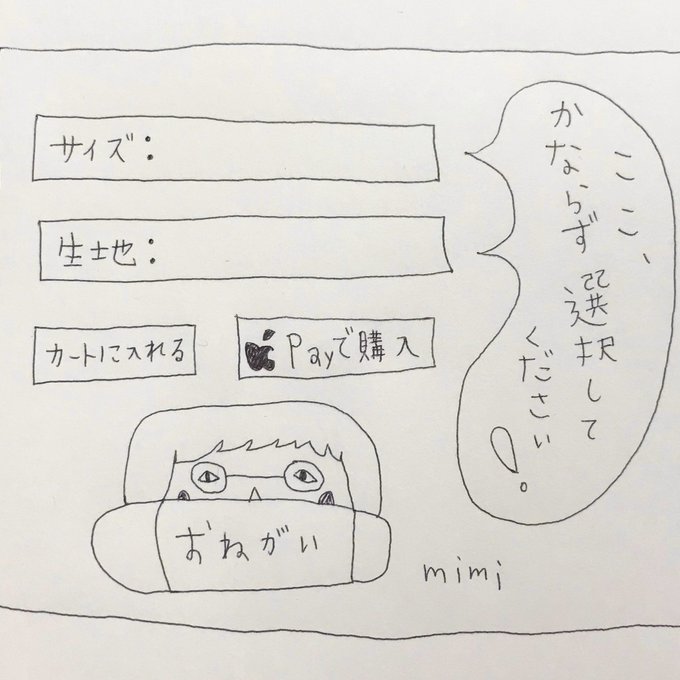 サイズ:
生地:
カートに入れる
Payで購入
ここ、
かならず選択して
ください!
おねがい
mimi